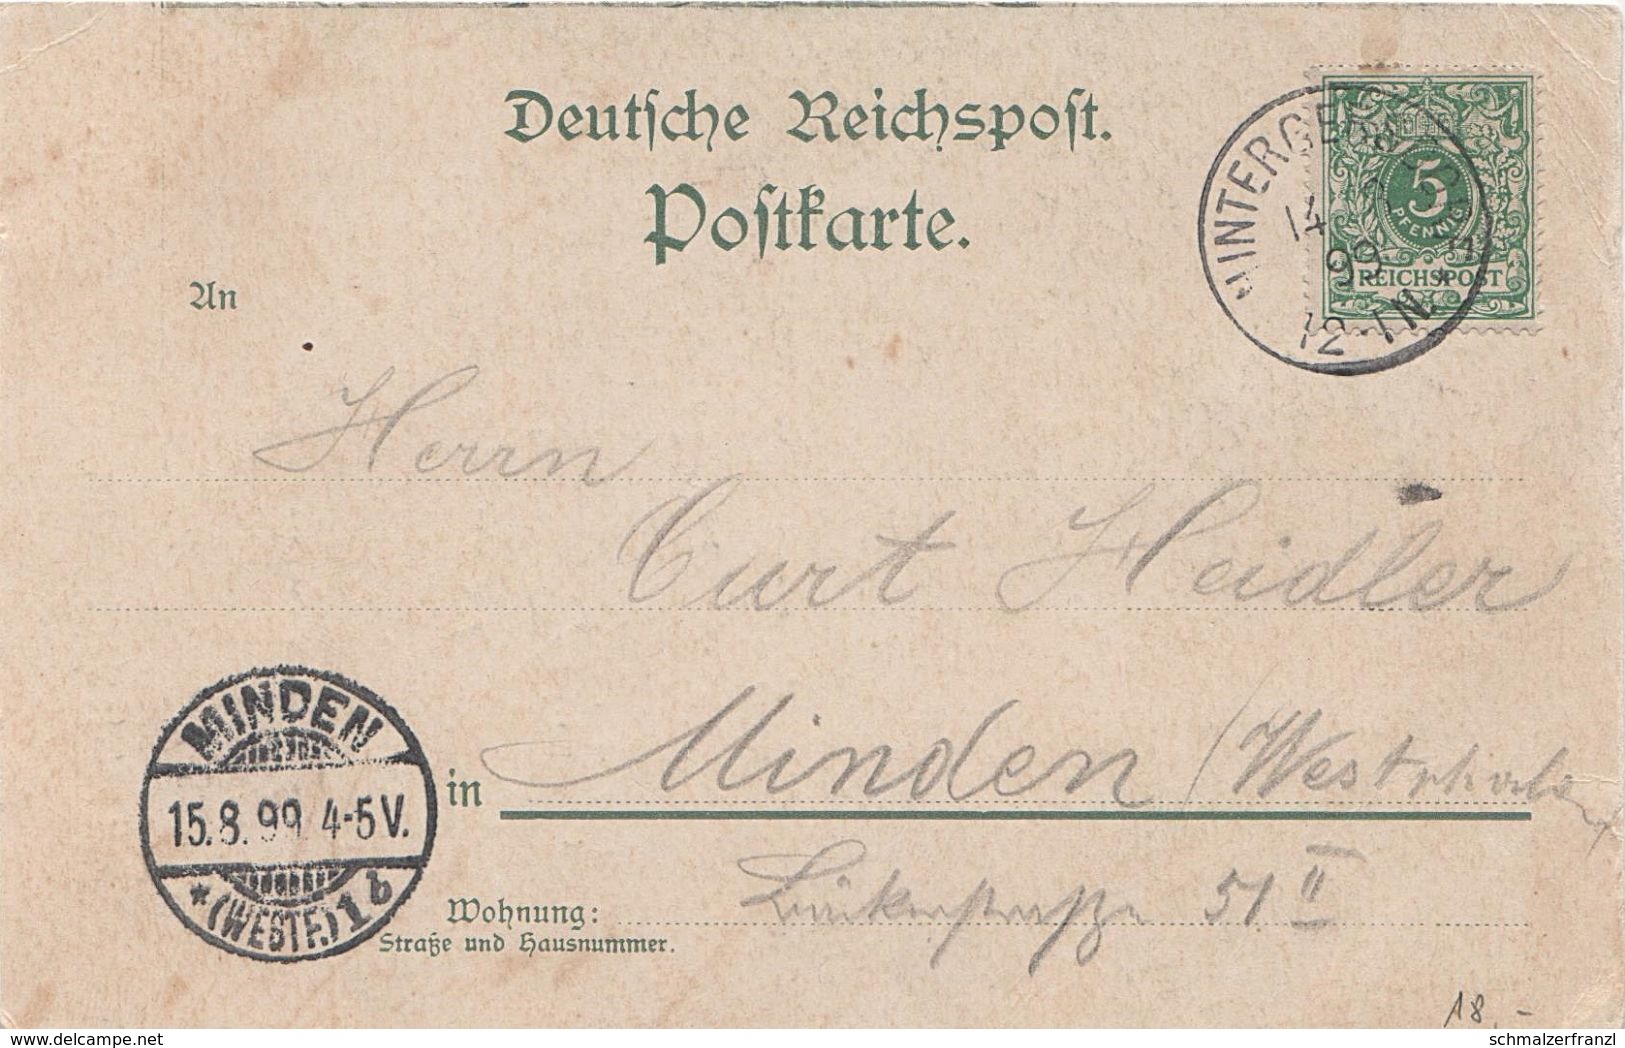 Deutsche Reichspost.
Postkarte.
5
PFENNIG
REICHSPOST
14
99
12-1N
An
Herrn
Curt Heidler
in Minden / Westphalen
MINDEN
15.8.99 4-5V.
* (WESTF.) 1b
Wohnung: 51 II
Straße und Hausnummer.
18,-
www.delcampe.net
schmalzerfranzl